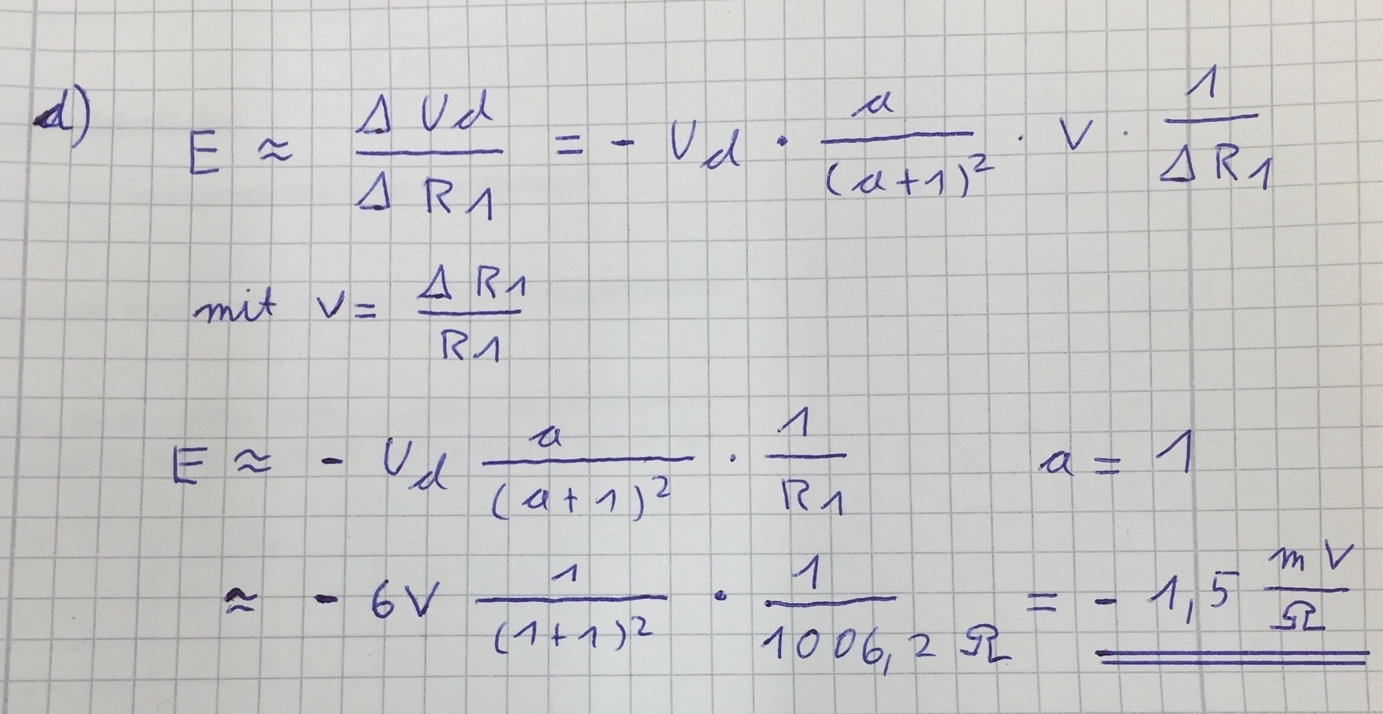 d) E ≈ Δ Ud / Δ R1 = - Ud · a / (a+1)² · v · 1 / Δ R1
mit v = Δ R1 / R1
E ≈ - Ud a / (a+1)² · 1 / R1 a = 1
≈ - 6V 1 / (1+1)² · 1 / 1006,2 Ω = - 1,5 mV / Ω